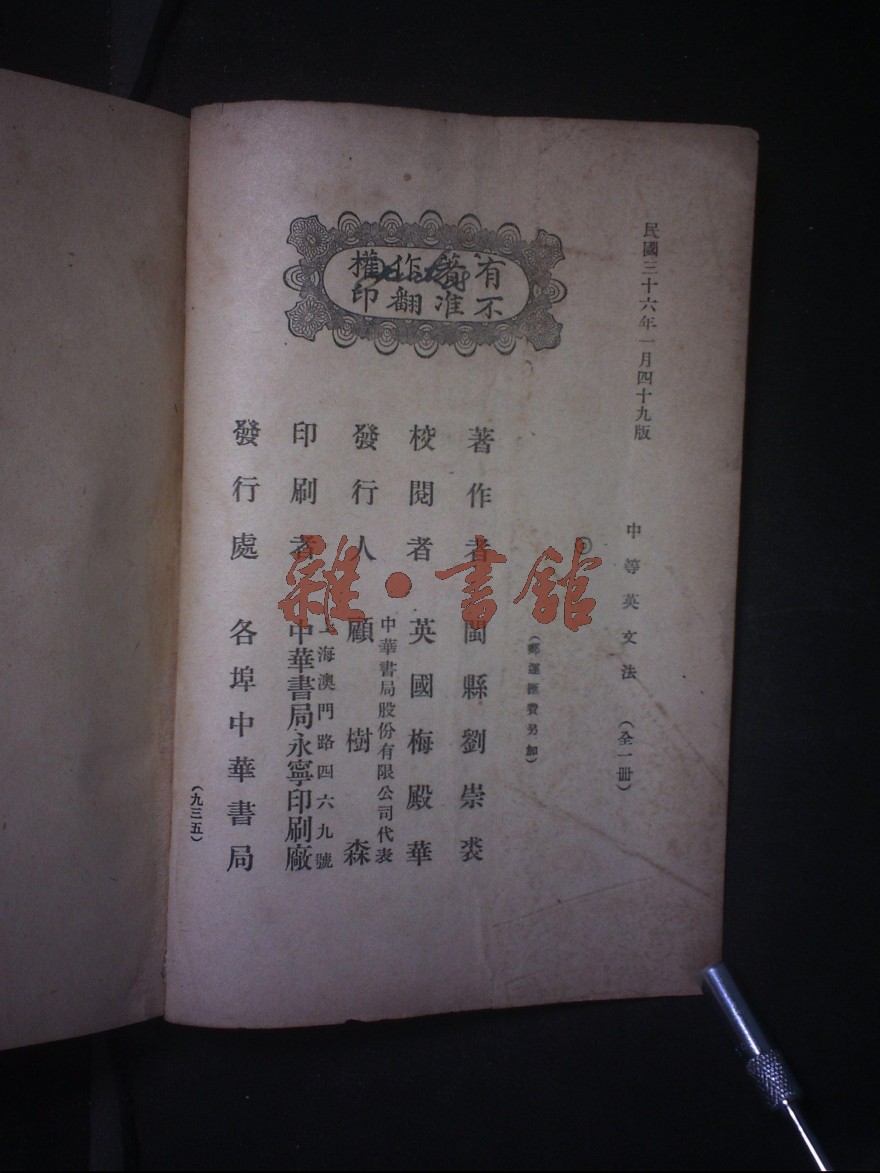 民國三十六年一月四十九版
中等英文法 (全一冊)
(郵運匯費另加)
有著作權
不准翻印
著作者 閩縣劉崇裘
校閱者 英國梅殿華
中華書局股份有限公司代表
發行人 顧樹森
上海澳門路四六九號
印刷者 中華書局永寧印刷廠
發行處 各埠中華書局
(九三五)
雜·書館